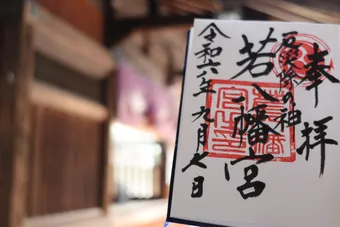 奉拝
厄除の神
若八幡宮
令和六年九月七日